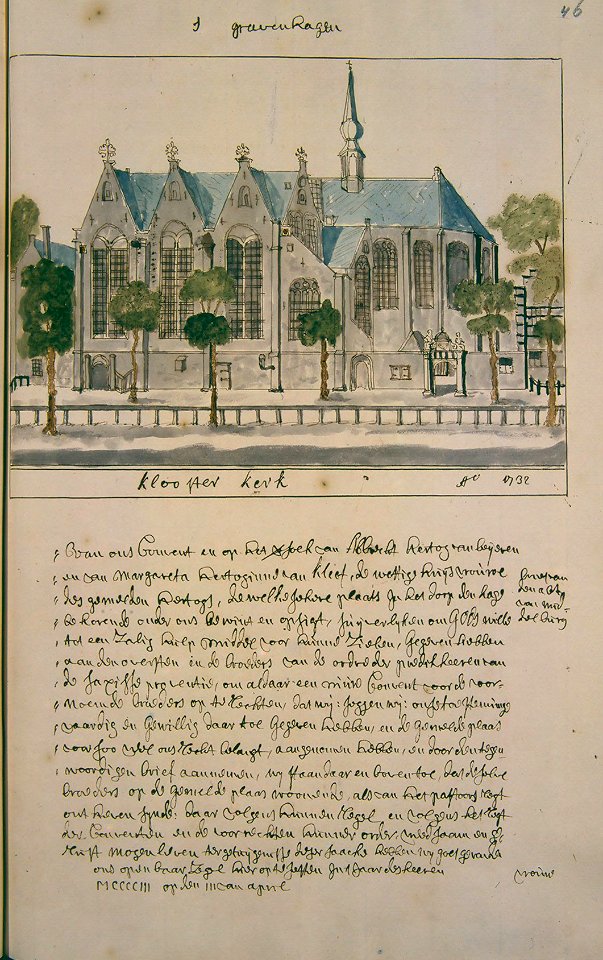 46
s gravenhagen
klooster kerk
Ao 1732
van ons Convent en op het van Albrecht hertog van beijeren
en van Margareta hertoginne van kleef, de wettige huijsvrouwe
des gemelden hertogs, de welke sekere plaats in het dorp den hage
behorende onder ons bewint en opsigt, suijverlijken om GODS wille
tot een Zalig hulp middel voor hunne Zielen, gegeven hebben
aan den oversten en de broeders van de ordre der predikheeren van
de saxisse provintie, om aldaar een nieuw Convent voor de voor-
noemde broeders op te rechten, dat wij seggen wij onse toestemminge
vaardig en gewillig daar toe gegeven hebben, en de gemelde plaats
voor soo veel ons Recht belangt, aangenomen hebben, en door den tegen-
woordigen brief aannemen, wij staan daar en boven toe, dat de selve
broeders op de gemelde plaas woonende, als van het pastoors regt
ontheven sijnde, daar volgens hunnen Regel, en volgens het Regt
der Conventen en de voorrechten hunner order, vreedsaam en
Rust mogen leven ter getuijgenisse deser saacke hebben wij goet gevonden
ons openbaar segel hier op te setten in t Jaar des heeren
MCCCCIII op den III van april
van den abt
van mid-
delburg
vrouw